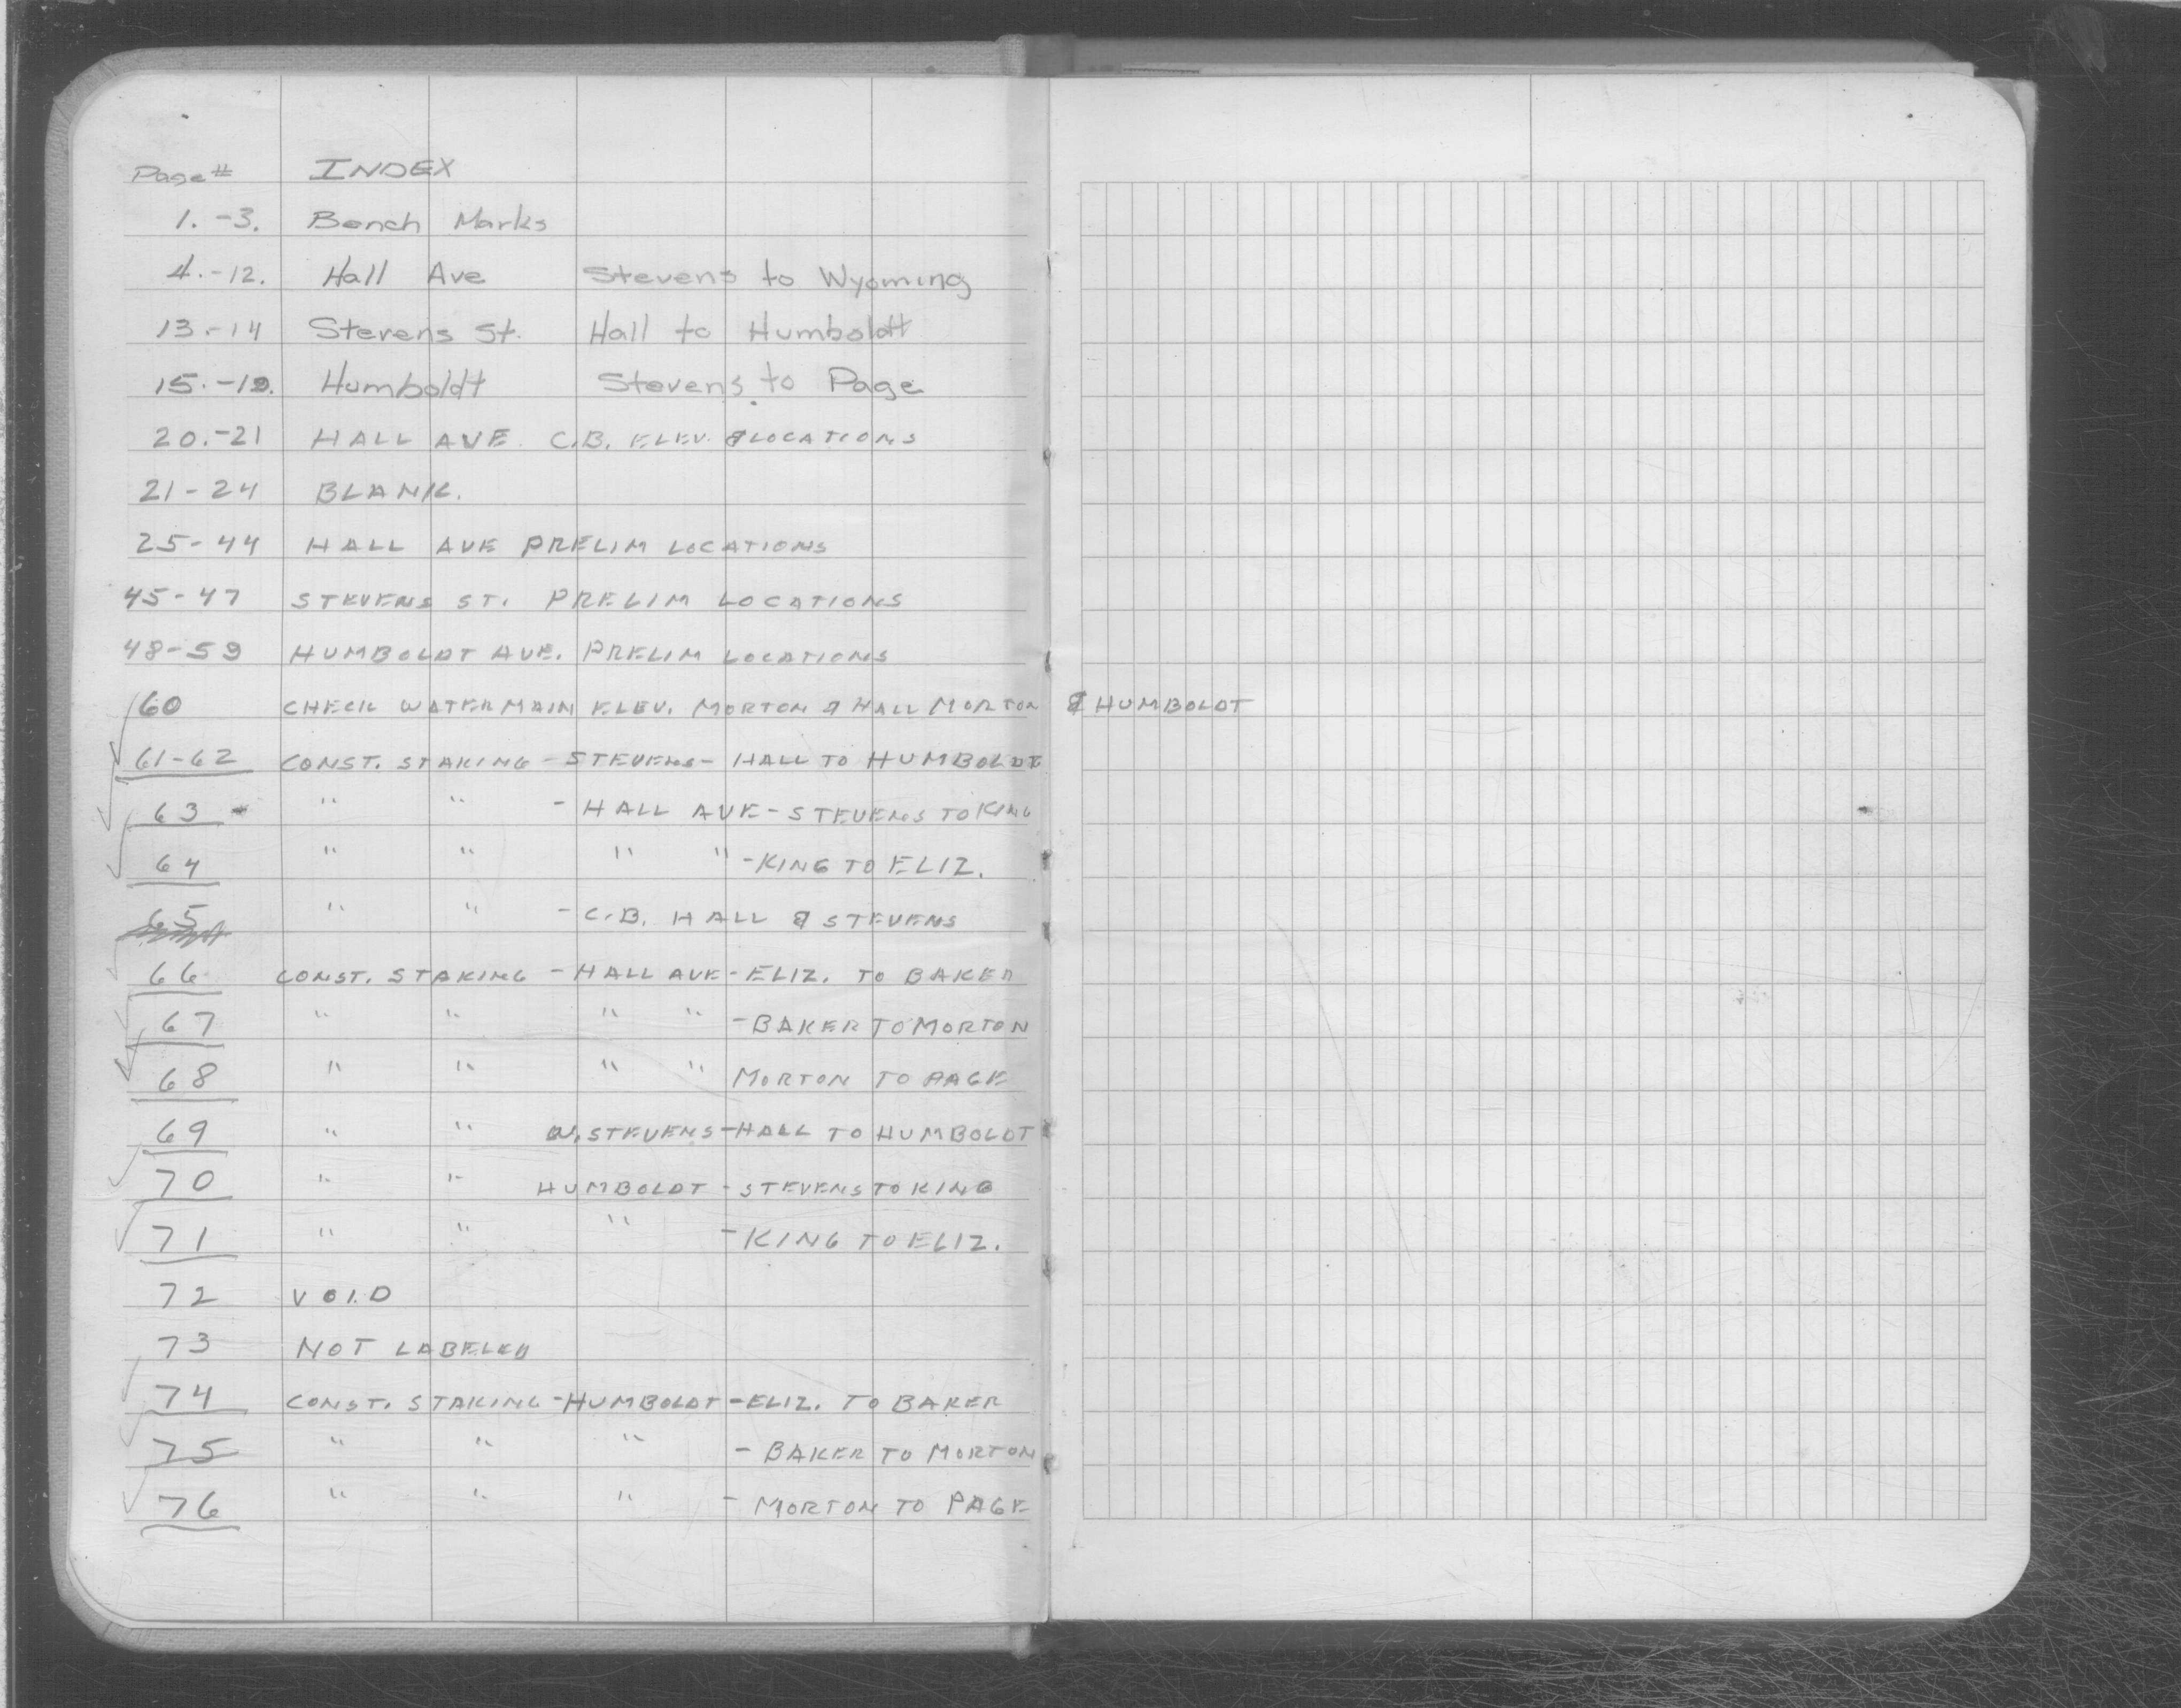 Page # INDEX
1.-3. Bench Marks
4.-12. Hall Ave Stevens to Wyoming
13.-14 Stevens St. Hall to Humboldt
15.-19. Humboldt Stevens to Page
20.-21 HALL AVE. C.B. ELEV. & LOCATIONS
21-24 BLANK.
25-44 HALL AVE PRELIM LOCATIONS
45-47 STEVENS ST. PRELIM LOCATIONS
48-59 HUMBOLDT AVE. PRELIM LOCATIONS
60 CHECK WATERMAIN ELEV. MORTON & HALL MORTON & HUMBOLDT
61-62 CONST. STAKING - STEVENS - HALL TO HUMBOLDT
63 " " - HALL AVE - STEVENS TO KING
64 " " " " - KING TO ELIZ.
65 " " - C.B. HALL & STEVENS
66 CONST. STAKING - HALL AVE - ELIZ. TO BAKER
67 " " " " - BAKER TO MORTON
68 " " " " MORTON TO PAGE
69 " " W. STEVENS - HALL TO HUMBOLDT
70 " " HUMBOLDT - STEVENS TO KING
71 " " " - KING TO ELIZ.
72 VOID
73 NOT LABELED
74 CONST. STAKING - HUMBOLDT - ELIZ. TO BAKER
75 " " " - BAKER TO MORTON
76 " " " - MORTON TO PAGE